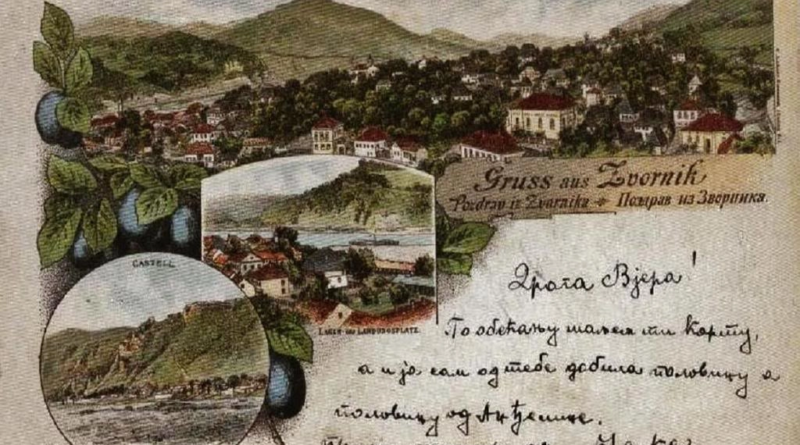 Gruss aus Zvornik
Pozdrav iz Zvornika ✦ Поздрав из Зворника.
CASTELL
LAGER- UND LANDUNGSPLATZ.
Драга Вјера!
По обећању шаљем ти карту,
а и ја сам од тебе добила половину а
половину од Анђелине.